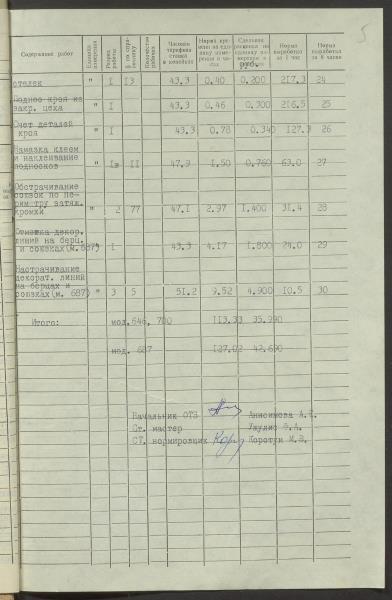 5
Содержание работ | Единица измерения | Разряд работы | № по справочнику | Количество рабочих | Часовая тарифная ставка в копейках | Норма времени на единицу измерения в часах | Сдельная расценка на единицу измерения в | Норма выработки за 1 час | Норма выработки за 8 часов
стелек " I I3 43.3 0.40 0.200 217.3 24
Поднос кроя из
закр. цеха " I 43.3 0.46 0.300 216.5 25
Счет деталей
кроя " I 43.3 0.78 0.340 127.3 26
Намазка клеем
и наклеивание
подносков " Iв II 47.9 1.50 0.760 63.0 27
Обстрачивание
союзок по
затяж.
кромки " 2 77 47.1 2.97 1.400 31.4 28
Отметка декор.
линий на берц.
и союзках(м.687) " I 43.3 4.17 1.800 24.0 29
Настрачивание
декорат. линий
на берцах и
союзках(м. 687) " 3 5 51.2 9.52 4.900 10.5 30
Итого: мод.646, 700 113.33 35.990
мод. 687 127.02 42.690
Начальник ОТЗ Анисимова А.
Ст. мастер А.
СТ. нормировщик Коротун М.В.